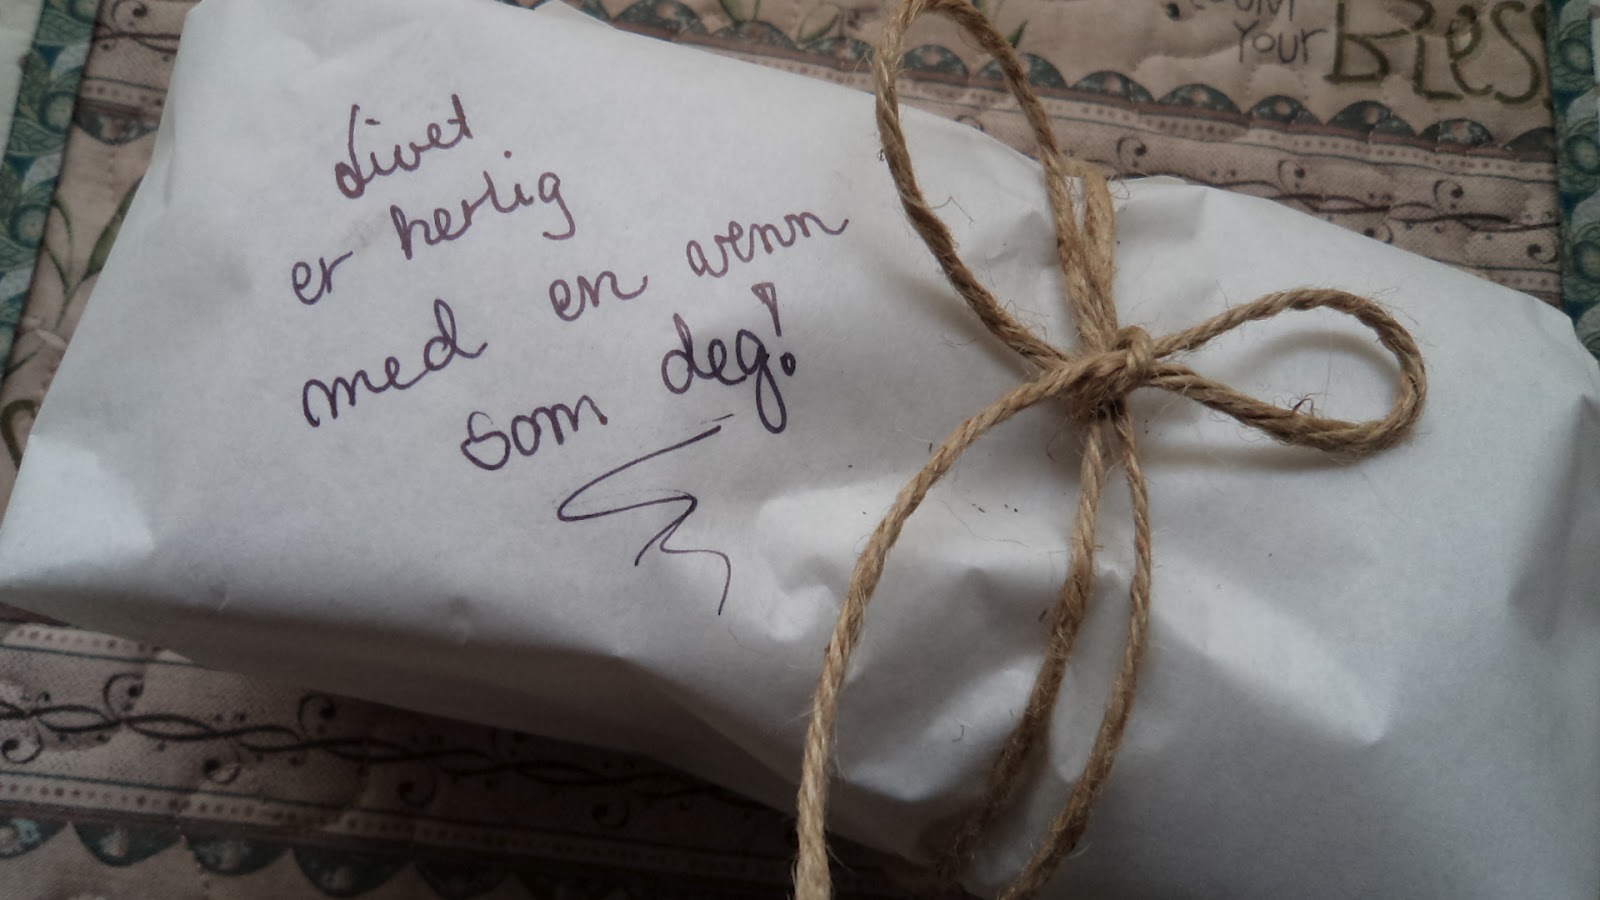 Your Bless
Livet
er herlig
med en venn
som deg!